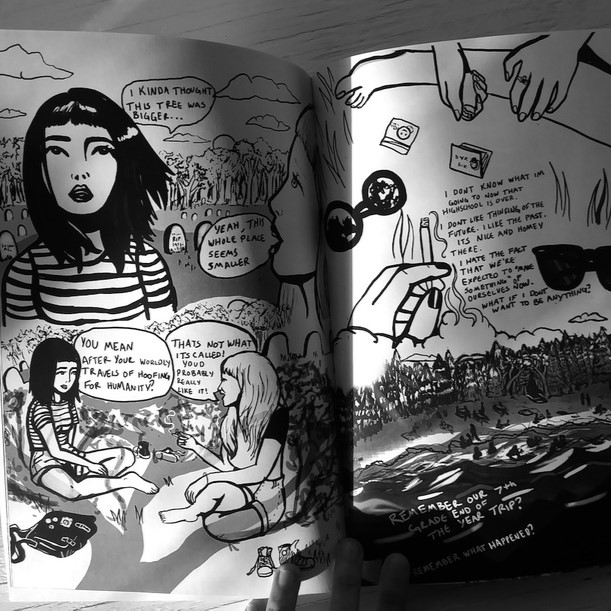 I KINDA THOUGHT
THIS TREE WAS
BIGGER...
YEAH, THIS
WHOLE PLACE
SEEMS
SMALLER
RIP
YOU MEAN
AFTER YOUR WORLDLY
TRAVELS OF HOOFING
FOR HUMANITY?
THATS NOT WHAT
ITS CALLED!
YOUD
PROBABLY
REALLY
LIKE IT!
I DONT KNOW WHAT IM
GOING TO NOW THAT
HIGHSCHOOL IS OVER.
I DONT LIKE THINKING OF THE
FUTURE. I LIKE THE PAST.
ITS NICE AND HOMEY
THERE.
I HATE THE FACT
THAT WE'RE
EXPECTED TO MAKE
SOMETHING OF
OURSELVES NOW.
WHAT IF I DONT
WANT TO BE ANYTHING?
REMEMBER OUR 7th
GRADE END OF
THE YEAR TRIP?
REMEMBER WHAT HAPPENED?